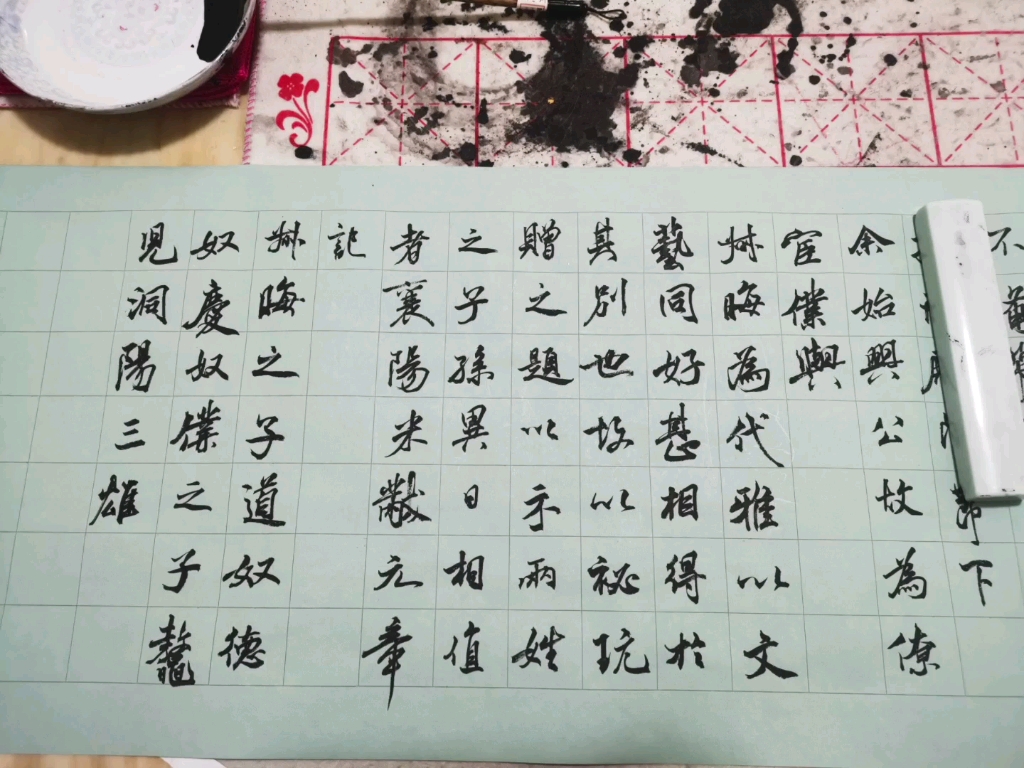 不
下
余始興公故為僚
宦僕與
叔晦為代雅以文
藝同好甚相得於
其別也故以祕玩
贈之題以示兩姓
之子孫異日相值
者襄陽米黻元章
記
叔晦之子道奴德
奴慶奴僕之子鼇
兒洞陽三雄